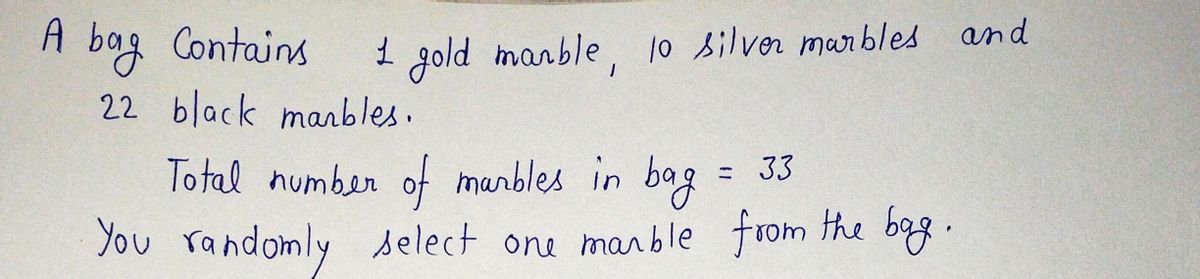 A bag Contains 1 gold marble, 10 silver marbles and
22 black marbles.
Total number of marbles in bag = 33
You randomly select one marble from the bag.